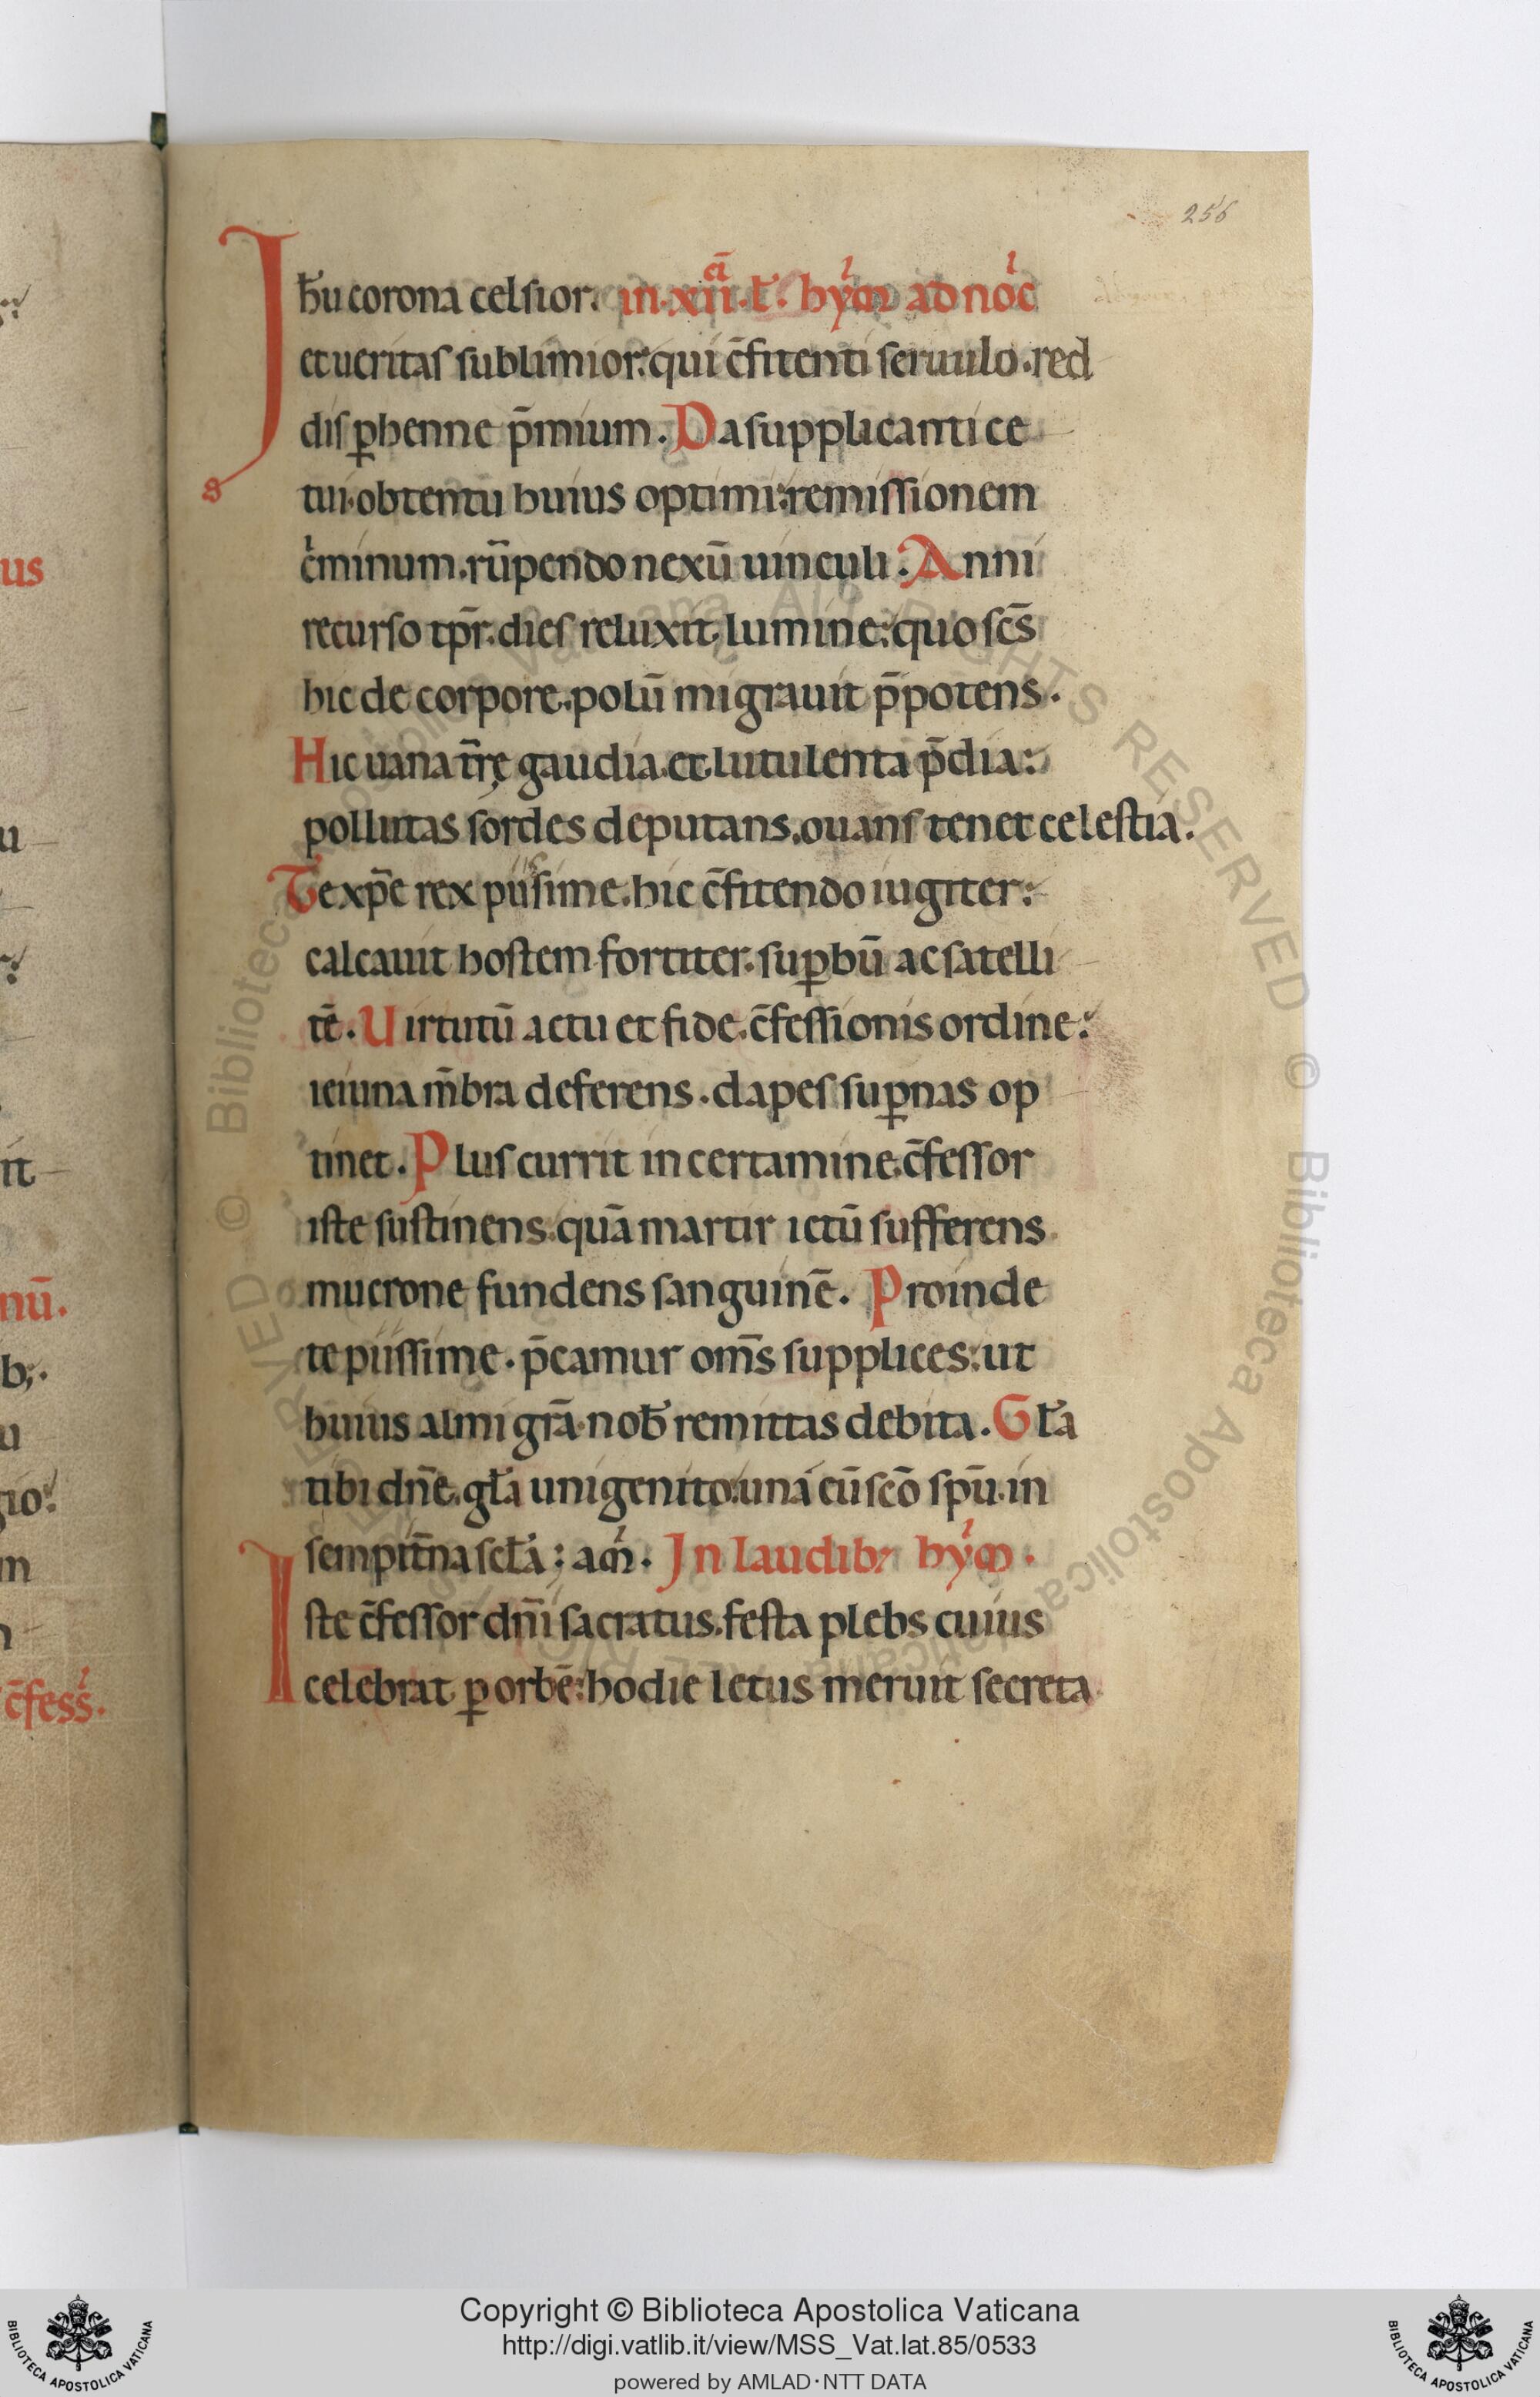 256
Jħu corona celsior. in xii.ł. hym̅ ad noc̅
et ueritas sublimior: qui c̅fitenti seruulo. red
dis p̲henne p̅mium. Da supplicanti ce
tui. obtentu huius optimi: remissionem
cͥminum. ru̅pendo nexu̅ uinculi. Anni
recurso tp̅r. dies reluxit lumine: quo sc̅s
hic de corpore. polu̅ migrauit p̅potens.
Hic uana tr̅ę gaudia. et lutulenta p̅dia:
pollutas sordes deputans. ouans tenet celestia.
Te xp̅e rex piissime. hic c̅fitendo iugiter:
calcauit hostem fortiter. sup̲bu̅ ac satelli
te̅. Uirtutu̅ actu et fide. c̅fessionis ordine:
ieiuna m̅bra deferens. dapes sup̲nas op
tinet. Plus currit in certamine. c̅fessor
iste sustinens. qua̅ martir ictu̅ sufferens
mucrone fundens sanguine̅. Proinde
te piissime. p̅camur om̅s supplices: ut
huius almi gr̅a. nob̅ remittas debita. Gła
tibi dn̅e. gła unigenito: una cu̅ sc̅o spu̅. in
sempit̅na scła: am̅. Jn laudib; hym̅.
Iste c̅fessor dn̅i sacratus. festa plebs cuius
celebrat p̲ orbe̅: hodie letus meruit secreta
us
u
it
nu̅.
b;.
u
gio:
m
c̅fess̅.
© Biblioteca Apostolica Vaticana ALL RIGHTS RESERVED © Biblioteca Apostolica Vaticana ALL RIGHTS RESERVED
BIBLIOTECA APOSTOLICA VATICANA
Copyright © Biblioteca Apostolica Vaticana
http://digi.vatlib.it/view/MSS_Vat.lat.85/0533
powered by AMLAD·NTT DATA
BIBLIOTECA APOSTOLICA VATICANA